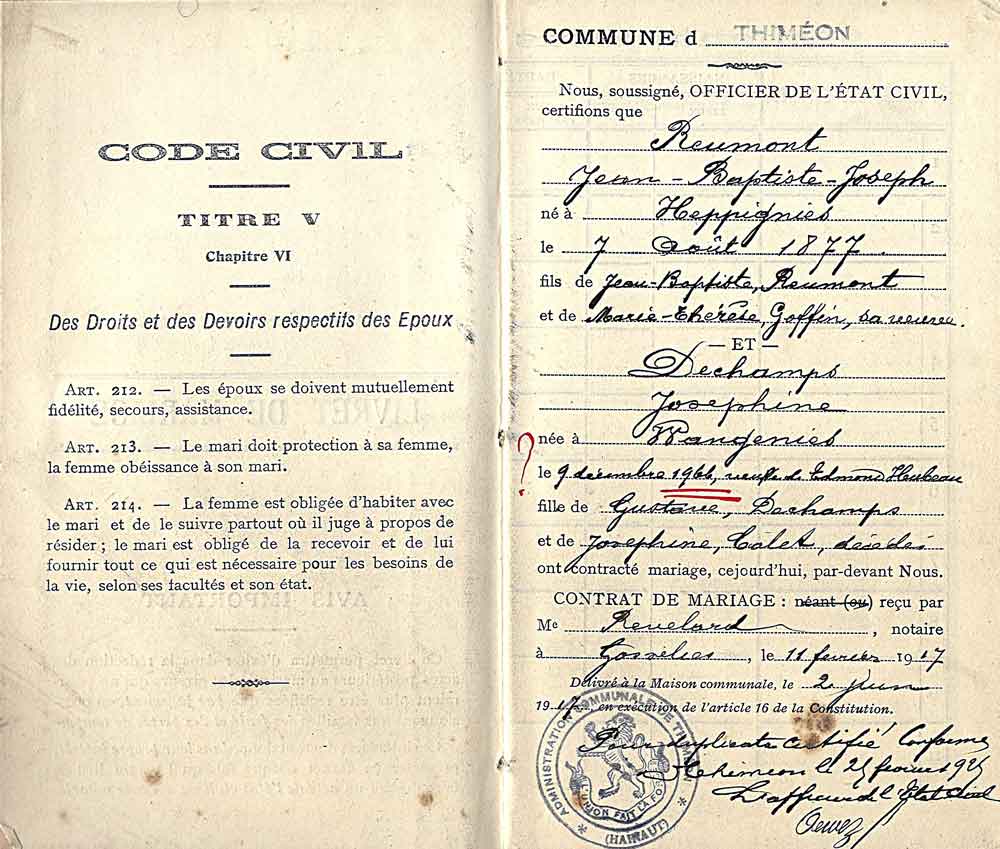 CODE CIVIL
TITRE V
Chapitre VI
Des Droits et des Devoirs respectifs des Epoux
ART. 212. — Les époux se doivent mutuellement
fidélité, secours, assistance.
ART. 213. — Le mari doit protection à sa femme,
la femme obéissance à son mari.
ART. 214. — La femme est obligée d'habiter avec
le mari et de le suivre partout où il juge à propos de
résider ; le mari est obligé de la recevoir et de lui
fournir tout ce qui est nécessaire pour les besoins de
la vie, selon ses facultés et son état.
COMMUNE d THIMÉON
Nous, soussigné, OFFICIER DE L'ÉTAT CIVIL,
certifions que
Reumont
Jean-Baptiste-Joseph
né à Heppignies
le 7 Août 1877
fils de Jean-Baptiste, Reumont
et de Marie-Thérèse, Goffin, sa veuve.
— ET —
Dechamps
Josephine
? née à Wangenies
le 9 décembre 1966, veuve de Edmond Heubeau
fille de Gustave, Dechamps
et de Josephine, Calet, décédés
ont contracté mariage, cejourd'hui, par-devant Nous.
CONTRAT DE MARIAGE : néant (ou) reçu par
Me Revelard, notaire
à Gosselies, le 11 février 1917
Délivré à la Maison communale, le 2 juin
1917, en exécution de l'article 16 de la Constitution.
Pour duplicata certifié Conforme
Thiméon le 25 février 192
L'officier de l'Etat Civil
ADMINISTRATION COMMUNALE DE THIMÉON
L'UNION FAIT LA FORCE
(HAINAUT)